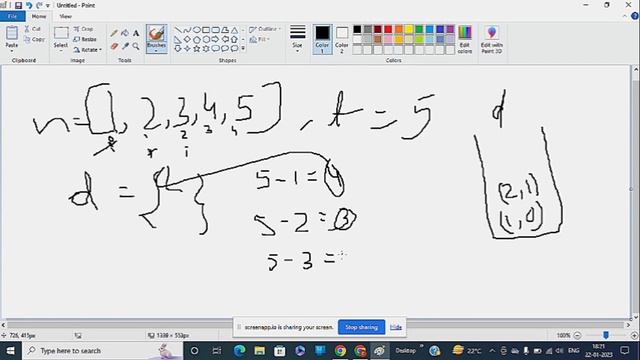 Untitled - Paint
File Home View
Paste Cut Copy Select Crop Resize Rotate Brushes Outline Fill Size Color 1 Color 2 Edit colors Edit with Paint 3D
Clipboard Image Tools Shapes Colors
n=[1, 2, 3, 4, 5], t=5 d
1 2 3 4
i
d = { }
5-1=4
5-2=3
5-3=
(2,1)
(1,0)
726, 415px 1339 × 553px 100%
screenapp.io is sharing your screen. Stop sharing Hide
Type here to search Desktop 22°C ENG 18:21 22-01-2023